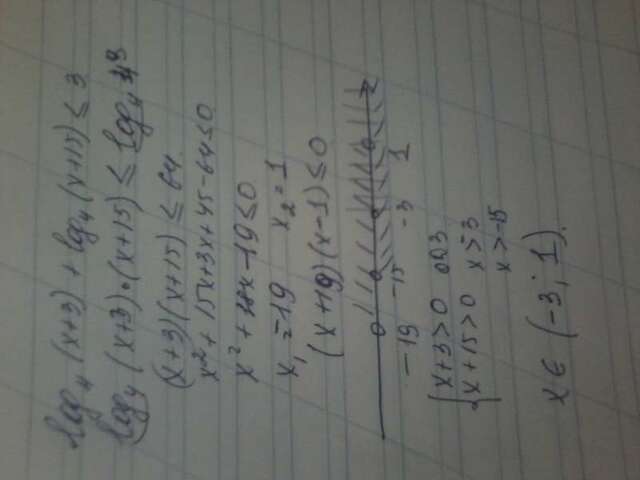 log₄ (x+3) + log₄ (x+15) ≤ 3
log₄ (x+3)·(x+15) ≤ log₄ 4³
(x+3)(x+15) ≤ 64
x² + 15x+3x+45-64≤0
x² + 18x -19≤0
x₁ = -19 x₂ = 1
(x+19)(x-1)≤0
-19 -15 -3 1
{ x+3>0 ОДЗ
x+15>0 x>-3
x>-15
x ∈ (-3; 1).